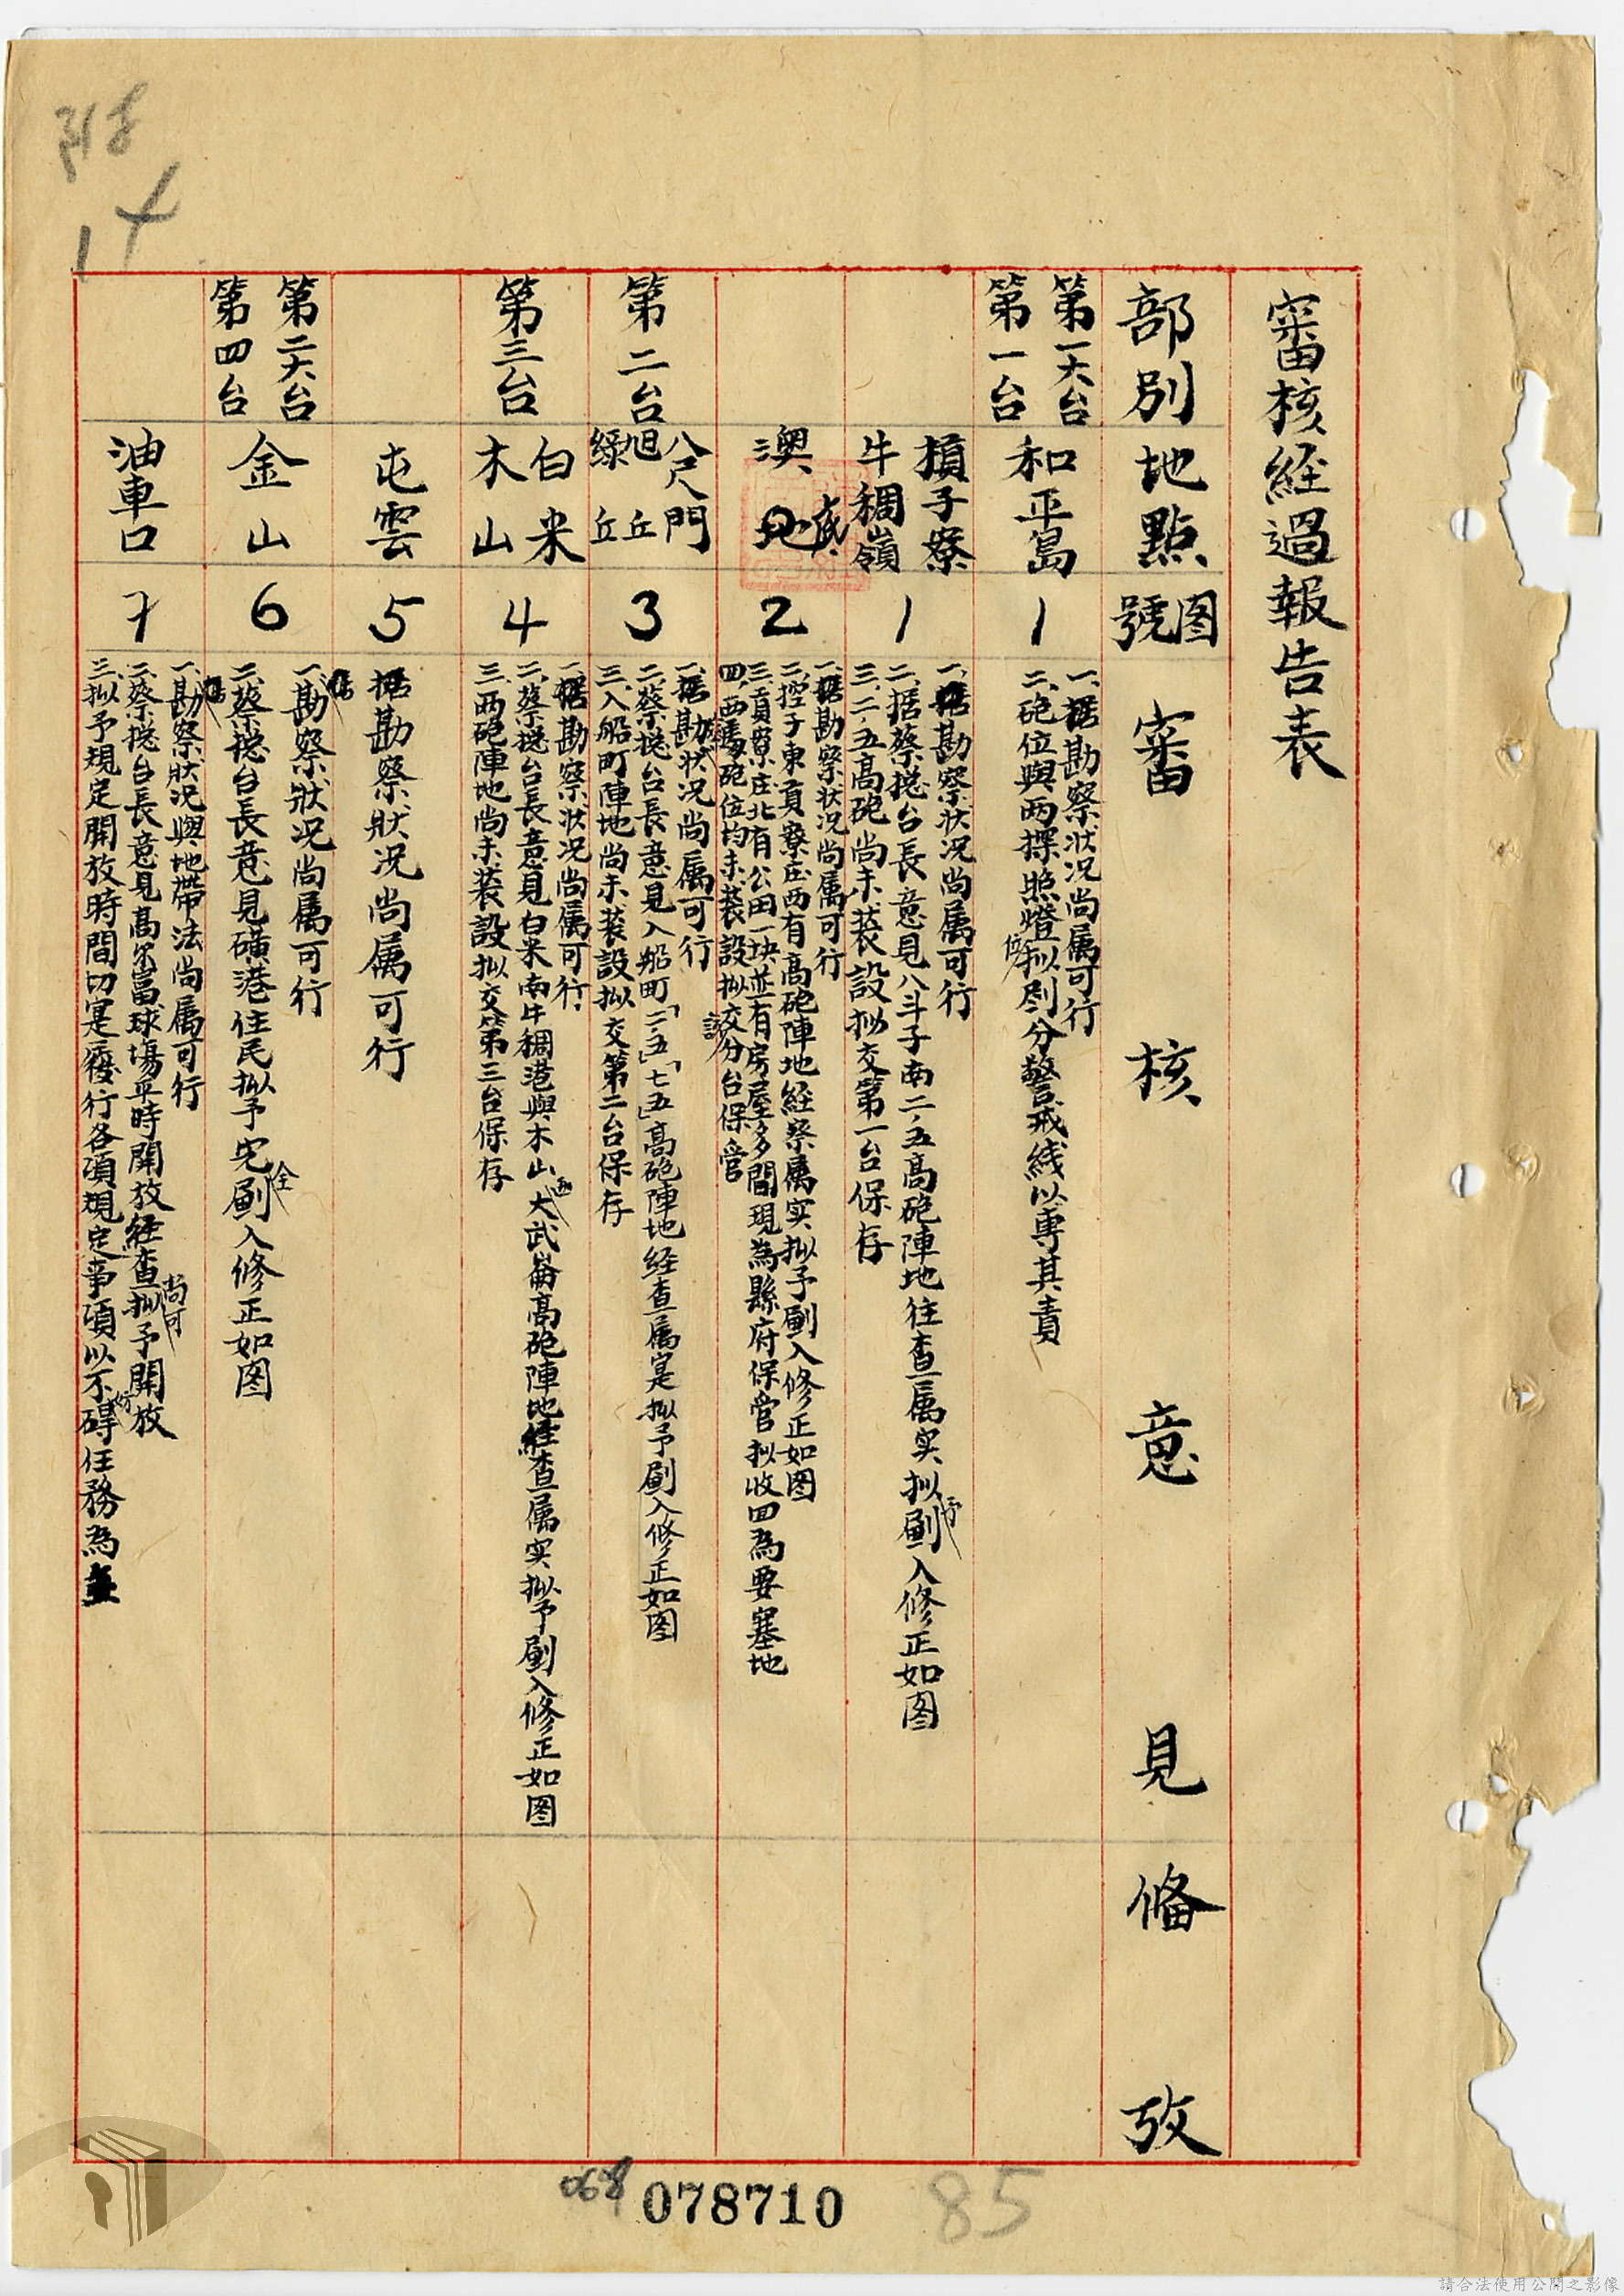 審核経過報告表
部別
地點
图號
審核意見
俻攷
第一大台
第一台
和平島
1
一、据勘察状况尚属可行
二、砲位與两探照燈拟划分警戒线以專其責
槓子寮
牛稠嶺
1
一、据勘察状况尚属可行
二、据蔡总台長意見八斗子南二.五高砲陣地往查属实拟予劃入修正如图
三、二.五高砲尚未装設拟交第一台保存
澳底
2
一、据勘察状况尚属可行
二、控子東貢寮庄西有高砲陣地経察属实拟予劃入修正如图
三、貢寮庄北有公田一块並有房屋多間現為縣府保管拟收回為要塞地
四、两砲位均未装設拟交分台保管
第二台
八尺門
旭丘
綠丘
3
一、据勘状况尚属可行
二、蔡总台長意見入船町「二.五」「七.五」高砲陣地経查属寔拟予劃入修正如图
三、入船町陣地尚未装設拟交第二台保存
第三台
白米
木山
4
一、据勘察状况尚属可行
二、蔡总台長意見白米南牛稠港與木山西大武崙高砲陣地経查属实拟予劃入修正如图
三、两砲陣地尚未装設拟交第三台保存
屯雲
5
据勘察狀况尚属可行
第二大台
第四台
金山
6
一、据勘察狀况尚属可行
二、据蔡总台長意見磺港住民拟予完全劃入修正如图
油車口
7
一、勘察狀况與地帶法尚属可行
二、蔡总台長意見高尔富球場平時開放経查尚可拟予開放
三、拟予規定開放時間切寔履行各項規定事項以不妨碍任務為主
14
078710
85
請合法使用公開之影像